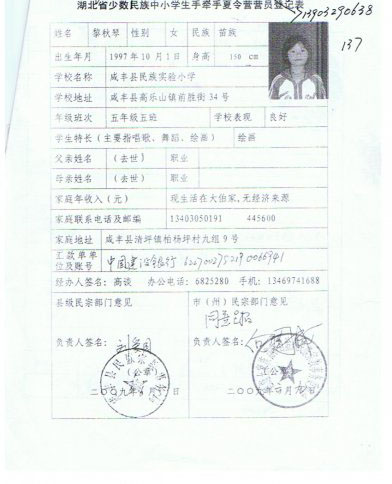 湖北省少数民族中小学生手牵手夏令营营员登记表
13903290638
137
姓名 黎秋琴 性别 女 民族 苗族
出生年月 1997年10月1日 身高 150 cm
学校名称 咸丰县民族实验小学
学校地址 咸丰县高乐山镇前胜街34号
年级班次 五年级五班 学校表现 良好
学生特长(主要指唱歌、舞蹈、绘画) 绘画
父亲姓名 (去世) 职业
母亲姓名 (去世) 职业
家庭年收入(元) 现生活在大伯家,无经济来源
家庭联系电话及邮编 13403050191 445600
家庭地址 咸丰县清坪镇柏杨坪村九组9号
汇款单单位及账号 中国建设银行
经办人签名:高谈 办公电话:6825280 手机:13469741688
县级民宗部门意见 市(州)民宗部门意见
负责人签名: 负责人签名:
(公章) (公
二〇〇九年 月 日 二〇〇九年 月 日